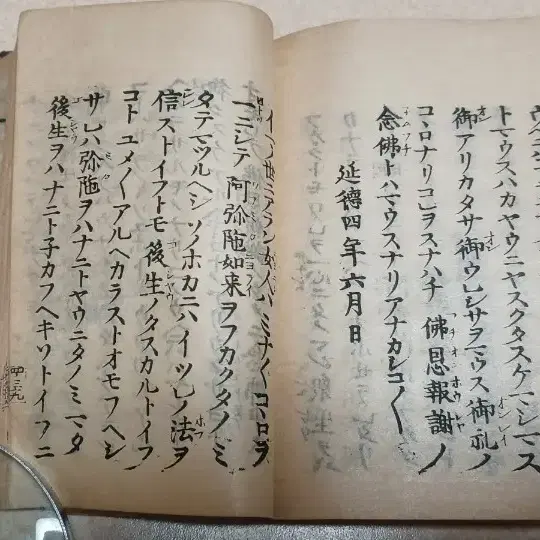 トマウスハカヤウニヤスクタスケマシマス
御アリカタサ御ウレシサヲマウス御礼ノ
コヽロナリコレヲスナハチ佛恩報謝ノ
念佛トハマウスナリアナカシコ〱
延徳四年六月日
イマノ世ニアラン女人ハミナ〱コヽロヲ
一ニシテ阿弥陁如来ヲフカクタノミ
タテマツルヘシソノホカニハイツレノ法ヲ
信ストイフトモ後生ノタスカルトイフ
コトユメ〱アルヘカラストオモフヘシ
サレハ弥陁ヲハナニトヤウニタノミマタ
後生ヲハナニト子カフヘキソトイフニ